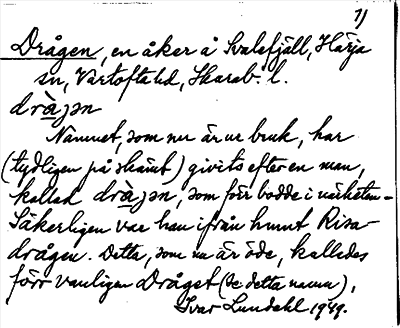 1)
Drågen, en åker å Svalefjäll, Härja
sn, Vartofta hd, Skarab. l.
dràgən
Namnet, som nu är ur bruk, har
(tydligen på skämt) givits efter en man,
kallad dràgən, som förr bodde i närheten.
Säkerligen var han ifrån humt Risa-
drågen. Detta, som nu är öde, kallades
förr vanligen Dråget (se detta namn),
Ivar Lundahl 1949.